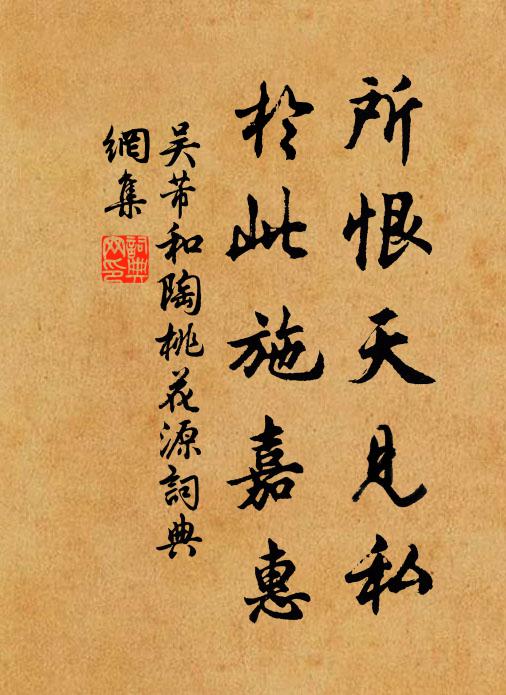 所恨天見私
於此施嘉惠
吴芾和陶桃花源詞典
網集
詞典
网印